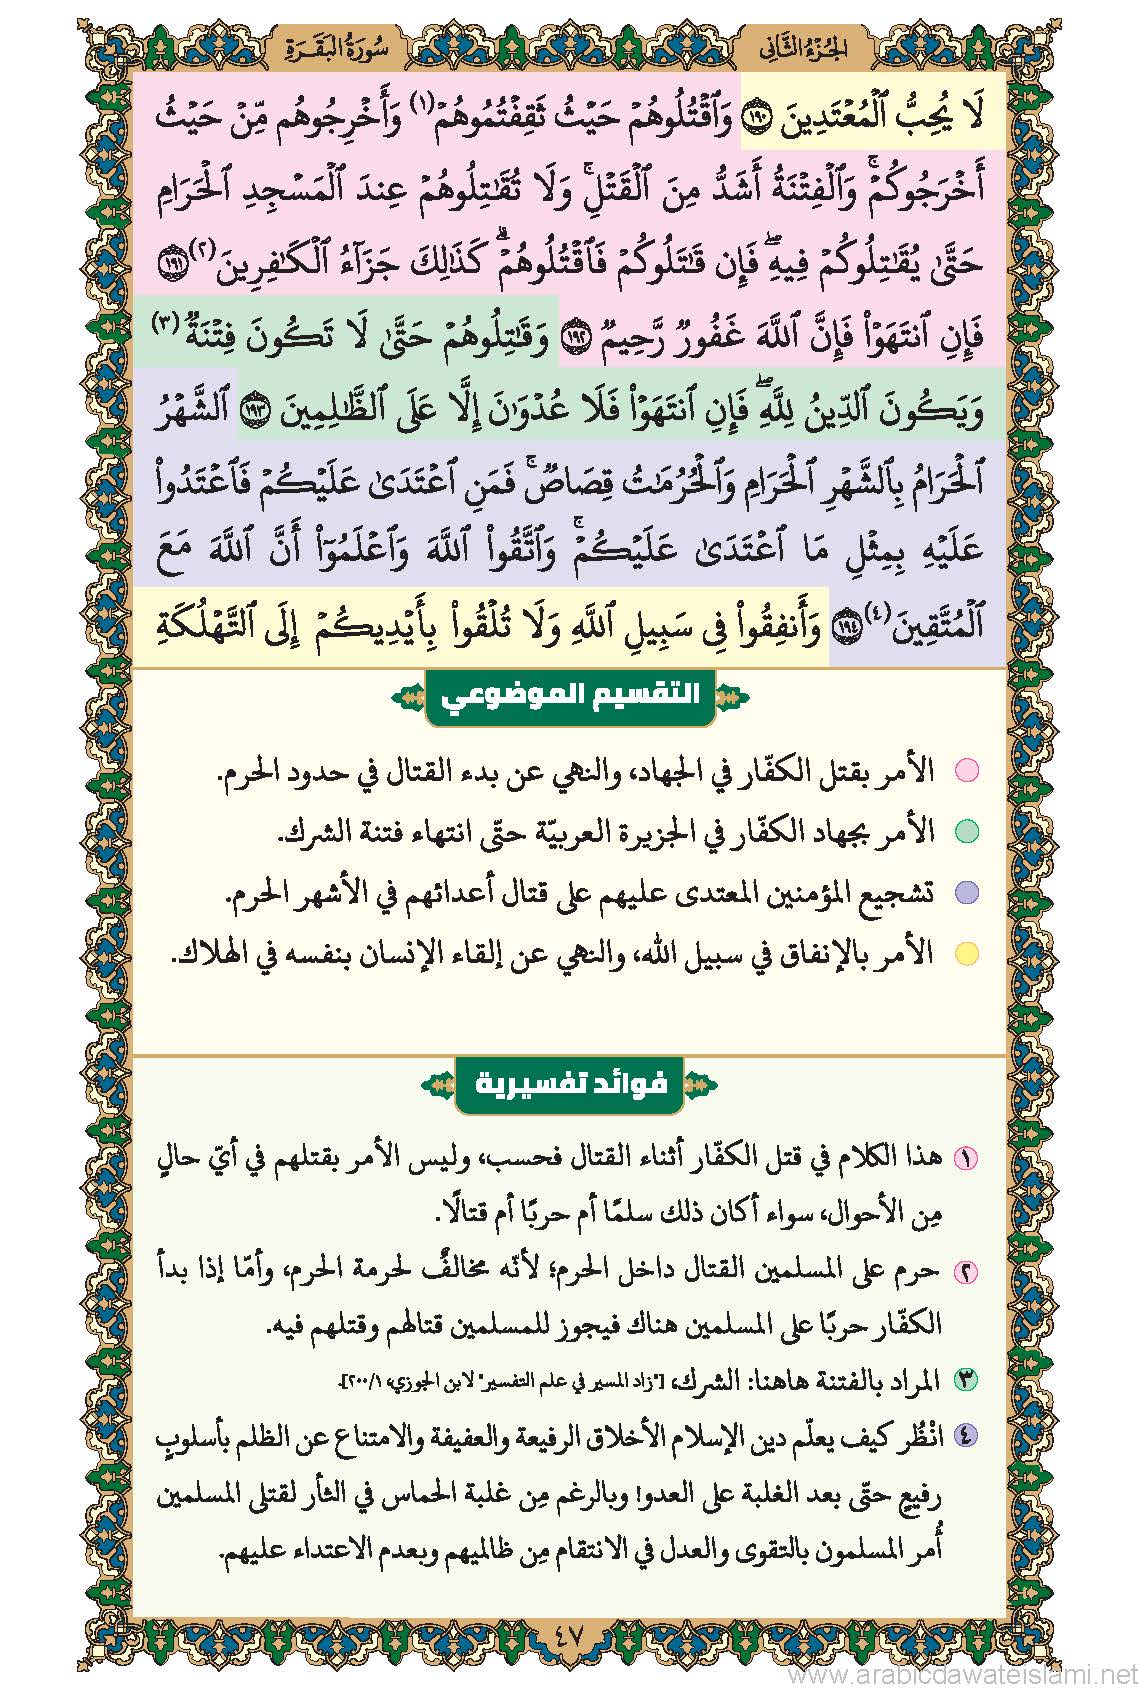 الجُزْءُ الثَّانِي
سُورَةُ البَقَرَةِ
لَا يُحِبُّ ٱلْمُعْتَدِينَ ١٩٠ وَٱقْتُلُوهُمْ حَيْثُ ثَقِفْتُمُوهُمْ(١) وَأَخْرِجُوهُم مِّنْ حَيْثُ
أَخْرَجُوكُمْۚ وَٱلْفِتْنَةُ أَشَدُّ مِنَ ٱلْقَتْلِۚ وَلَا تُقَٰتِلُوهُمْ عِندَ ٱلْمَسْجِدِ ٱلْحَرَامِ
حَتَّىٰ يُقَٰتِلُوكُمْ فِيهِۖ فَإِن قَٰتَلُوكُمْ فَٱقْتُلُوهُمْۗ كَذَٰلِكَ جَزَآءُ ٱلْكَٰفِرِينَ(٢) ١٩١
فَإِنِ ٱنتَهَوْا۟ فَإِنَّ ٱللَّهَ غَفُورٌ رَّحِيمٌ ١٩٢ وَقَٰتِلُوهُمْ حَتَّىٰ لَا تَكُونَ فِتْنَةٌ(٣)
وَيَكُونَ ٱلدِّينُ لِلَّهِۖ فَإِنِ ٱنتَهَوْا۟ فَلَا عُدْوَٰنَ إِلَّا عَلَى ٱلظَّٰلِمِينَ ١٩٣ ٱلشَّهْرُ
ٱلْحَرَامُ بِٱلشَّهْرِ ٱلْحَرَامِ وَٱلْحُرُمَٰتُ قِصَاصٌۚ فَمَنِ ٱعْتَدَىٰ عَلَيْكُمْ فَٱعْتَدُوا۟
عَلَيْهِ بِمِثْلِ مَا ٱعْتَدَىٰ عَلَيْكُمْۚ وَٱتَّقُوا۟ ٱللَّهَ وَٱعْلَمُوٓا۟ أَنَّ ٱللَّهَ مَعَ
ٱلْمُتَّقِينَ(٤) ١٩٤ وَأَنفِقُوا۟ فِى سَبِيلِ ٱللَّهِ وَلَا تُلْقُوا۟ بِأَيْدِيكُمْ إِلَى ٱلتَّهْلُكَةِ
التقسيم الموضوعي
الأمر بقتل الكفّار في الجهاد، والنهي عن بدء القتال في حدود الحرم.
الأمر بجهاد الكفّار في الجزيرة العربيّة حتّى انتهاء فتنة الشرك.
تشجيع المؤمنين المعتدى عليهم على قتال أعدائهم في الأشهر الحرم.
الأمر بالإنفاق في سبيل الله، والنهي عن إلقاء الإنسان بنفسه في الهلاك.
فوائد تفسيرية
١ هذا الكلام في قتل الكفّار أثناء القتال فحسب، وليس الأمر بقتلهم في أيّ حالٍ
مِن الأحوال، سواء أكان ذلك سلمًا أم حربًا أم قتالًا.
٢ حرم على المسلمين القتال داخل الحرم؛ لأنّه مخالفٌ لحرمة الحرم، وأمّا إذا بدأ
الكفّار حربًا على المسلمين هناك فيجوز للمسلمين قتالهم وقتلهم فيه.
٣ المراد بالفتنة هاهنا: الشرك، ["زاد المسير في علم التفسير" لابن الجوزي، ٢٠٠/١].
٤ انْظُر كيف يعلّم دين الإسلام الأخلاق الرفيعة والعفيفة والامتناع عن الظلم بأسلوبٍ
رفيعٍ حتّى بعد الغلبة على العدو! وبالرغم مِن غلبة الحماس في الثأر لقتلى المسلمين
أُمر المسلمون بالتقوى والعدل في الانتقام مِن ظالميهم وبعدم الاعتداء عليهم.
٤٧
www.arabicdawateislami.net